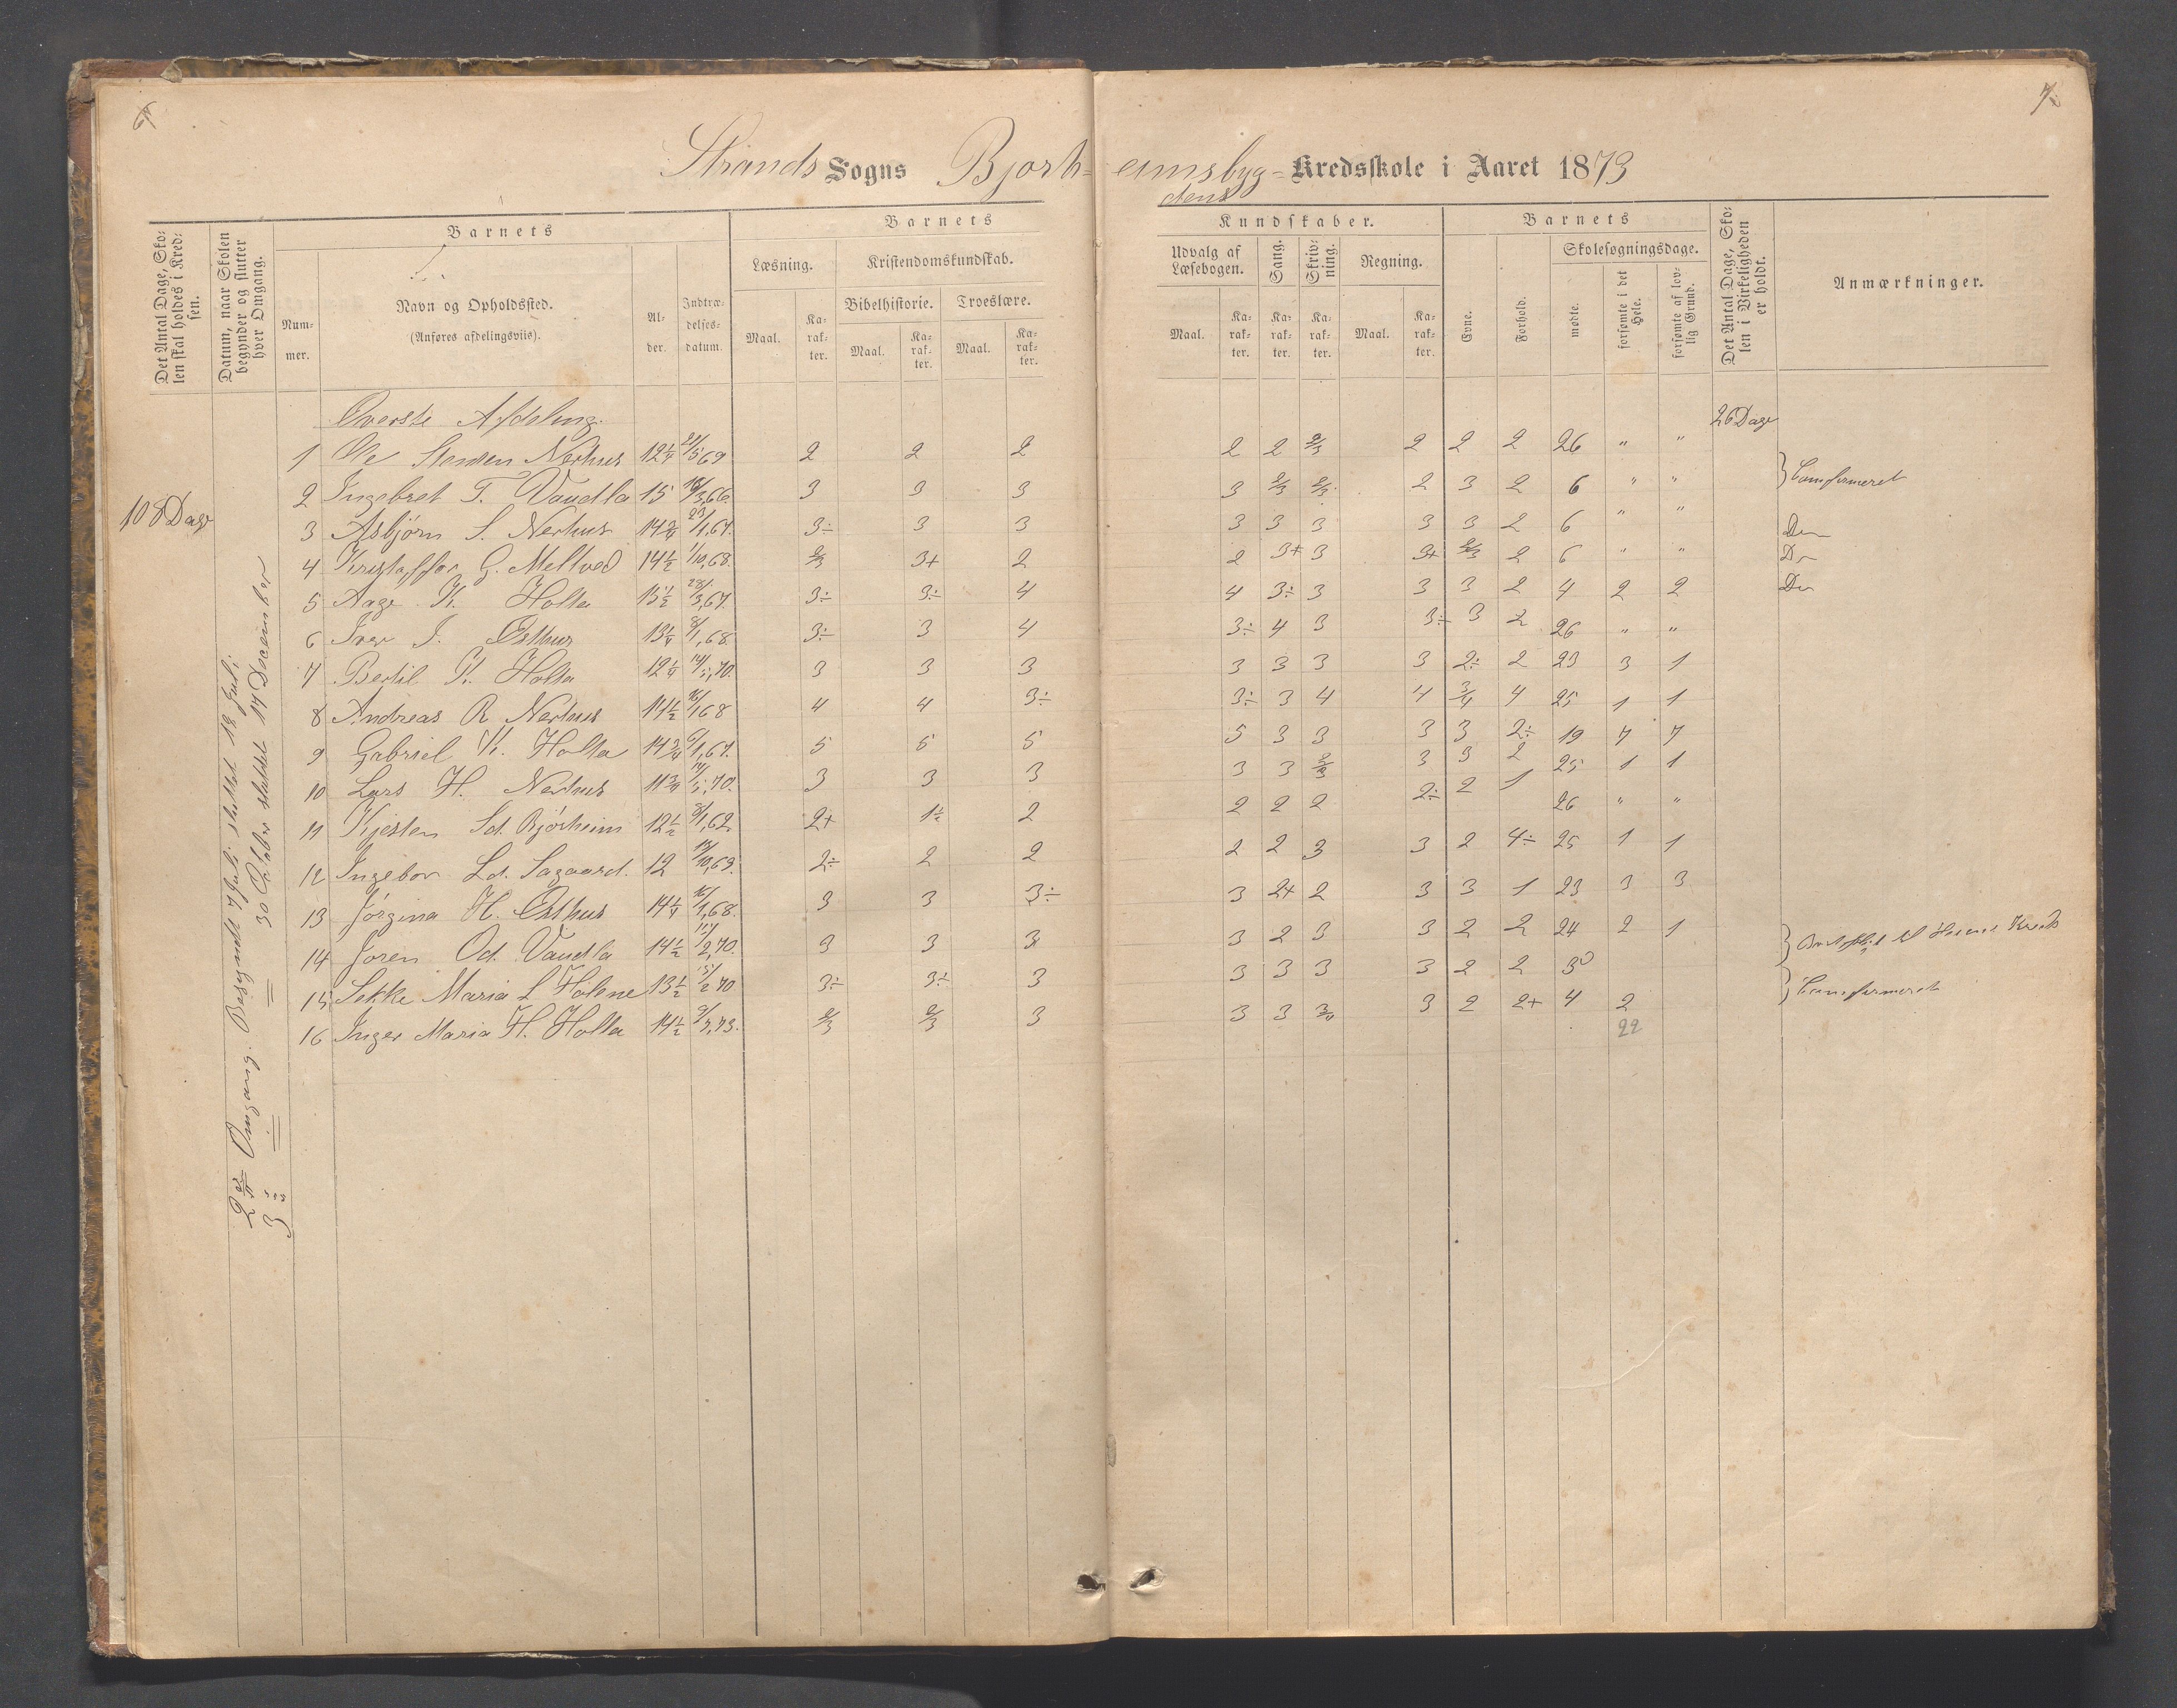 6
7
Strands Sogns Bjorh-eimsbyg-dens Kredsskole i Aaret 1873
Det Antal Dage, Skolen skal holdes i Kredsen.
Datum, naar Skolen begynder og slutter hver Omgang.
Barnets
Nummer.
Navn og Opholdssted.
(Anføres afdelingsviis).
Alder.
Indtrædelsesdatum.
Barnets
Læsning.
Maal.
Karakter.
Kristendomskundskab.
Bibelhistorie.
Maal.
Karakter.
Troeslære.
Maal.
Karakter.
Kundskaber.
Udvalg af Læsebogen.
Maal.
Karakter.
Sang.
Karakter.
Skrivning.
Karakter.
Regning.
Maal.
Karakter.
Barnets
Evne.
Forhold.
Skolesøgningsdage.
mødte.
forsømte i det Hele.
forsømte af lovlig Grund.
Det Antal Dage, Skolen i Virkeligheden er holdt.
Anmærkninger.
108 Dage
2den Omgang. Begyndt 7 Juli sluttet 18 Juli
3 " = = 30 Oktober sluttet 17 December
Øverste Afdeling.
26 Dage
1 Ole Nerhus 12 1/4 21/5 69 2 2 2 2 2 2/3 2 2 2 26 " "
2 Ingebret T. Vaudla 15 16/3, 66 3 3 3 3 2/3 2/3 2 3 2 6 " " Comfirmeret
3 Asbjörn S. Nerhus 14 3/4 23/1, 67. 3÷ 3 3 3 3 3 3 3 2 6 " " Do
4 Kristoffer G. Meltved 14 1/2 1/10, 68. 2/3 3+ 2 2 3+ 3 3+ 2/3 2 6 " " Do
5 Aage K. Holta 15 1/2 28/3, 67. 3÷ 3÷ 4 4 3÷ 3 3 3 2 4 2 2 Do
6 Iver I. Østhus 13 1/4 8/1, 68. 3÷ 3 4 3÷ 4 3 3÷ 3 2 26 " "
7 Bertil K. Holta 12 1/4 14/5, 70. 3 3 3 3 3 3 3 2÷ 2 23 3 1
8 Andreas R. Nerhus 14 1/2 16/1 68 4 4 3÷ 3÷ 3 4 4 3/4 4 25 1 1
9 Gabriel K. Holta 14 3/4 9/1, 67. 5 5 5 5 3 3 3 3 2÷ 19 7 7
10 Lars H. Nerhus 11 3/4 14/5, 70. 3 3 3 3 3 2/3 3 3 2 25 1 1
11 Kjesten Sd. Bjórheim 12 1/2 8/1, 62 2+ 1 1/2 2 2 2 2 2÷ 2 1 26 " "
12 Ingebor Ld. Sagaard. 12 10, 69. 2÷ 2 2 2 2 3 3 2 4÷ 25 1 1
13 Jórgina H. Østhus 14 1/4 16/1, 68. 3 3 3÷ 3 2+ 2 3 3 1 23 3 3
14 Joren Od. Vaudla 14 1/2 15/2, 70. 3 3 3 3 2 3 3 2 2 24 2 1
15 Sekke Maria L Holene 13 1/2 15/2 70 3÷ 3÷ 3 3 3 3 3 2 2 3
16 Inger Maria H. Holta 14 1/2 9/7, 73. 2/3 2/3 3 3 3 3 2 2+ 4 2 Comfirmeret
22